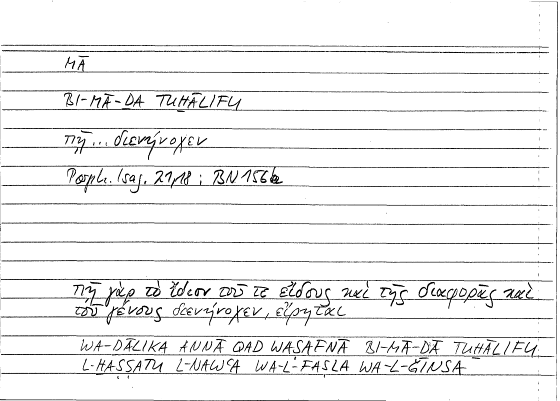 MĀ
BI-MĀ-ḎA TUḪĀLIFU
πῇ ... διενήνοχεν
Porph. Isag. 21,18 ; BN 156b
πῇ γὰρ τὸ ἴδιον τοῦ τε εἴδους καὶ τῆς διαφορᾶς καὶ
τοῦ γένους διενήνοχεν, εἴρηται
WA-ḎĀLIKA ANNĀ QAD WAṢAFNĀ BI-MĀ-ḎĀ TUḪĀLIFU
L-ḪĀṢṢATU L-NAWʿA WA-L-FAṢLA WA-L-ǦINSA